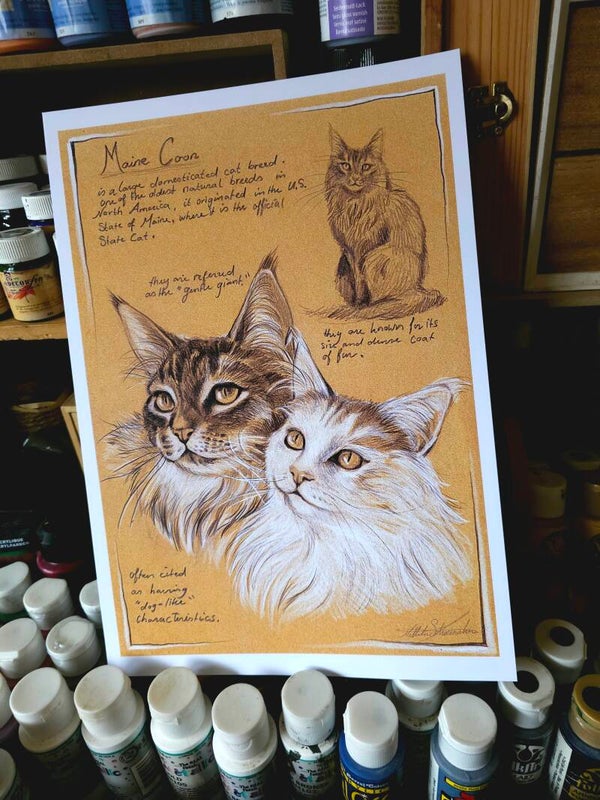 Maine Coon
is a large domesticated cat breed.
one of the oldest natural breeds in
North America, it originated in the U.S.
State of Maine, where it is the official
State Cat.
they are referred
as the "gentle giant,"
they are known for its
size and dense coat
of fur.
Often cited
as having
"dog-like"
characteristics.